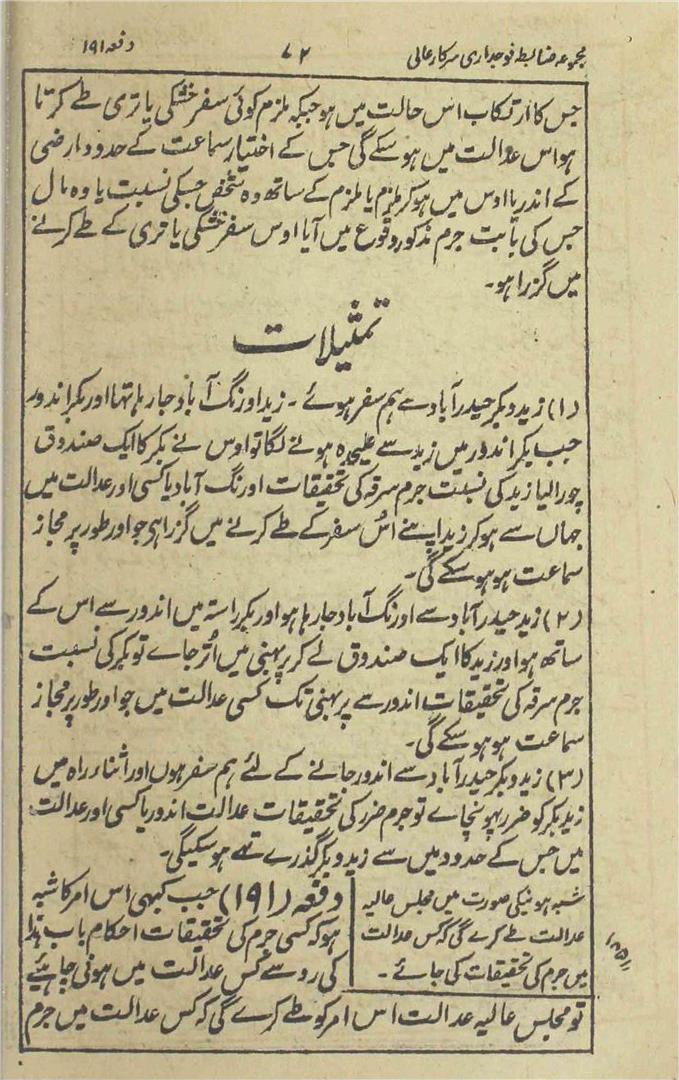 مجموعہ ضابطہ فوجداری سرکار عالی ۷۲ دفعہ ۱۹۱
جس کا ارتکاب اس حالت میں ہو جبکہ ملزم کوئی سفر خشکی یا تری طے کرتا
ہو اس عدالت میں ہو سکے گی جس کے اختیار سماعت کے حدود ارضی
کے اندر یا اوس میں ہو کر ملزم یا ملزم کے ساتھ وہ شخص جسکی نسبت یا وہ مال
جس کی بابت جرم مذکور وقوع میں آیا اوس سفر خشکی یا تری کے طے کرنے
میں گزرا ہو۔
تمثیلات
(۱) زید و بکر حیدرآباد سے ہم سفر ہوئے ۔ زید اورنگ آباد جا رہا تہا اور بکر اندور
جب بکر اندور میں زید سے علیحدہ ہونے لگا تو اوس نے بکر کا ایک صندوق
چورا لیا زید کی نسبت جرم سرقہ کی تحقیقات اورنگ آباد یا کسی اور عدالت میں
جہاں سے ہو کر زید اپنے اُس سفر کے طے کرنے میں گزرا ہی جو اور طور پر مجاز
سماعت ہو ہو سکے گی۔
(۲) زید حیدرآباد سے اورنگ آباد جا رہا ہو اور بکر راستہ میں اندور سے اس کے
ساتھ ہو اور زید کا ایک صندوق لے کر پربہنی میں اُتر جاے تو بکر کی نسبت
جرم سرقہ کی تحقیقات اندور سے پربہنی تک کسی عدالت میں جو اور طور پر مجاز
سماعت ہو ہو سکے گی۔
(۳) زید و بکر حیدرآباد سے اندور جانے کے لئے ہم سفر ہوں اور اثناء راہ میں
زید بکر کو ضرر پہونچاے تو جرم ضرر کی تحقیقات عدالت اندور یا کسی اور عدالت
میں جس کے حدود میں سے زید و بکر گذرے تہے ہو سکیگی۔
دفعہ (۱۹۱) جب کبھی اس امر کا شبہ
ہو کہ کسی جرم کی تحقیقات احکام باب ہذا
کی رو سے کس عدالت میں ہونی چاہئیے
شبہ ہونیکی صورت میں مجلس عالیہ
عدالت طے کرے گی کہ کس عدالت
میں جرم کی تحقیقات کی جائے ۔
تو مجلس عالیہ عدالت اس امر کو طے کرے گی کہ کس عدالت میں جرم